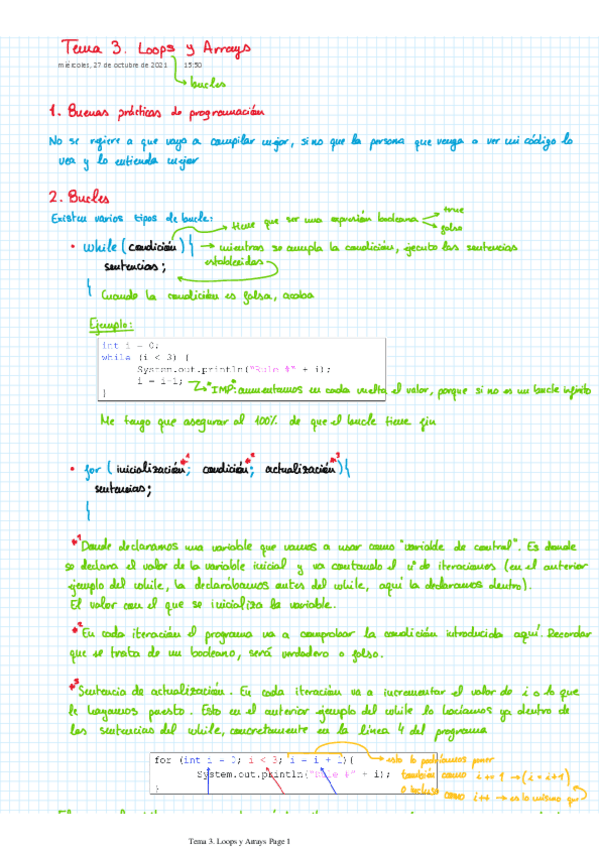 Tema 3. Loops y Arrays
miércoles, 27 de octubre de 2021 15:50
bucles
1. Buenas prácticas de programación
No se refiere a que vaya a compilar mejor, sino que la persona que venga a ver mi código lo
vea y lo entienda mejor
2. Bucles
Existen varios tipos de bucle:
tiene que ser una expresión booleana
true
falso
• while (condición) {
mientras se cumpla la condición, ejecuto las sentencias
establecidas
sentencias;
}
Cuando la condición es falsa, acaba
Ejemplo:
int i = 0;
while (i < 3) {
System.out.println("Rule #" + i);
i = i+1;
"IMP": aumentamos en cada vuelta el valor, porque si no es un bucle infinito
}
Me tengo que asegurar al 100% de que el bucle tiene fin
• for (inicialización*1; condición*2; actualización*3) {
sentencias;
}
*1 Donde declaramos una variable que vamos a usar como "variable de control". Es donde
se declara el valor de la variable inicial y va contando el nº de iteraciones (en el anterior
ejemplo del while, la declarábamos antes del while, aquí la declaramos dentro).
El valor con el que se inicializa la variable.
*2 En cada iteración el programa va a comprobar la condición introducida aquí. Recordar
que se trata de un booleano, será verdadero o falso.
*3 Sentencia de actualización. En cada iteración va a incrementar el valor de i o lo que
le hayamos puesto. Esto en el anterior ejemplo del while lo hacíamos ya dentro de
las sentencias del while, concretamente en la línea 4 del programa
for (int i = 0; i < 3; i = i + 1){
esto lo podríamos poner
System.out.println("Rule #" + i);
también como i += 1 → (i = i+1)
}
o incluso como i++ → es lo mismo que
Tema 3. Loops y Arrays Page 1